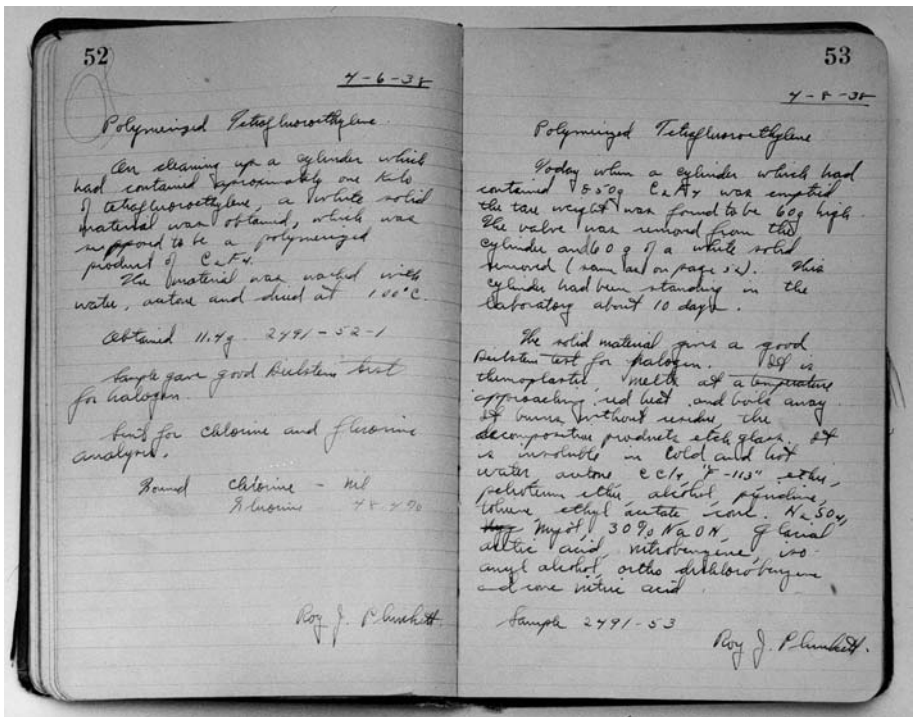 52
4-6-38
Polymerized Tetrafluoroethylene.
On cleaning up a cylinder which
had contained aproximately one Kilo
of tetrafluoroethylene, a white solid
material was obtained, which was
supposed to be a polymerized
product of C2F4.
The material was washed with
water, acetone and dried at 100°C.
Obtained 11.4g. 2491-52-1
Sample gave good Beilstein test
for halogen.
Sent for chlorine and fluorine
analysis.
Found chlorine - nil
Fluorine 48.4%
Roy J. Plunkett.
53
4-8-38
Polymerized Tetrafluoroethylene
Today when a cylinder which had
contained 850g C2F4 was emptied
the tare weight was found to be 60g high.
The valve was removed from the
cylinder and 60g of a white solid
removed (same as on page 52). This
cylinder had been standing in the
laboratory about 10 days.
The solid material gives a good
Beilstein test for halogen. It is
thermoplastic, melts at a temperature
approaching red heat and boils away.
It burns without residue, the
decomposition products etch glass. It
is insoluble in cold and hot
water acetone CCl4 "F-113" ether,
petroleum ether, alcohol, pyridine,
toluene ethyl acetate conc. H2SO4,
30% NaOH, glacial
acetic acid, nitrobenzene, iso-
amyl alcohol, ortho dichlorobenzene
and conc nitric acid.
Sample 2491-53
Roy J. Plunkett.